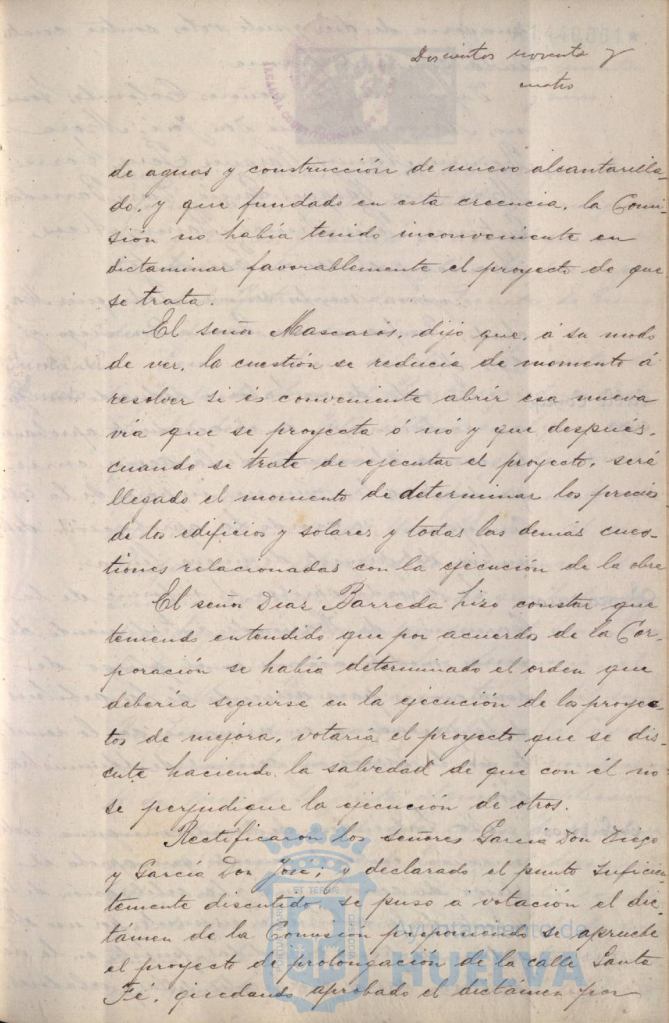 Doscientos noventa y
cuatro
de aguas y construcción de nuevo alcantarilla-
do, y que fundado en esta creencia, la Comi
sión no había tenido inconveniente en
dictaminar favorablemente el proyecto de que
se trata.
El señor Mascarós, dijo que, á su modo
de ver, la cuestión se reducía de momento á
resolver si és conveniente abrir esa nueva
vía que se proyecta ó nó y que después,
cuando se trate de ejecutar el proyecto, será
llegado el momento de determinar los precios
de los edificios y solares y todas las demás cues-
tiones relacionadas con la ejecución de la obra
El señor Díaz Barreda hizo constar que
teniendo entendido que por acuerdo de la Cor-
poración se había determinado el orden que
debería seguirse en la ejecución de los proyec-
tos de mejora, votaría el proyecto que se dis-
cute haciendo la salvedad de que con él no
se perjudique la ejecución de otros.
Rectificaron los señores García Don Diego
y García Don José; y declarado el punto suficien
temente discutido, se puso á votación el dic-
támen de la Comisión proponiendo se apruebe
el proyecto de prolongación de la calle Santa
Fé, quedando aprobado el dictámen por
Ayuntamiento de
HUELVA